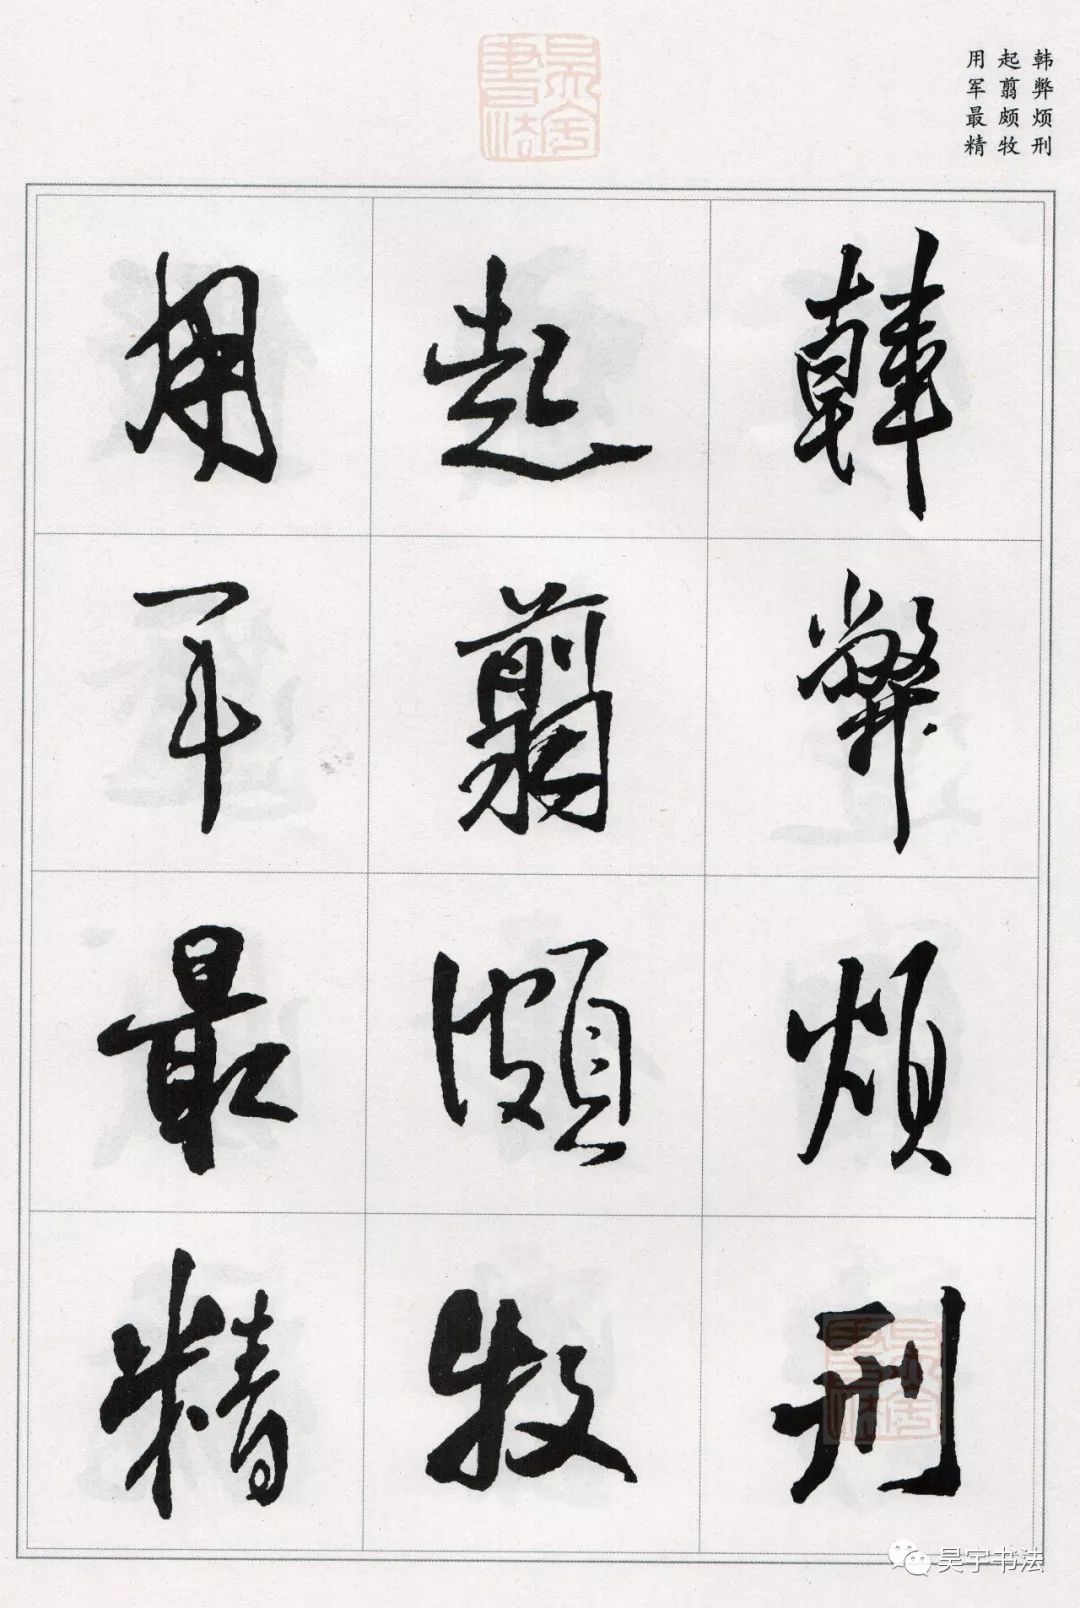 韩弊烦刑
起翦颇牧
用军最精
韓弊煩刑
起翦頗牧
用軍最精
昊宇书法